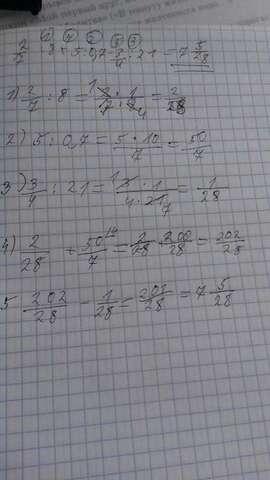 2/7 : 8 + 5 : 0,7 - 3/4 : 21 = 7 5/28
1) 2/7 : 8 = 2 · 1 / 7 · 8 4 = 2/28
2) 5 : 0,7 = 5 · 10 / 7 = 50/7
3) 3/4 : 21 = 1 3 · 1 / 4 · 21 7 = 1/28
4) 2/28 + 50/7 = 2/28 + 200/28 = 202/28
5 202/28 - 1/28 = 201/28 = 7 5/28